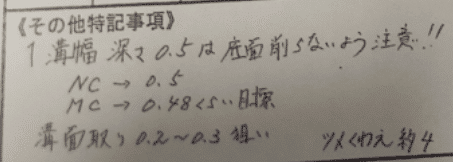 《その他特記事項》
1 溝幅 深さ 0.5は底面削らないよう注意!!
NC → 0.5
MC → 0.48くらい目標
溝面取り 0.2～0.3 狙い ツメくわえ 約4